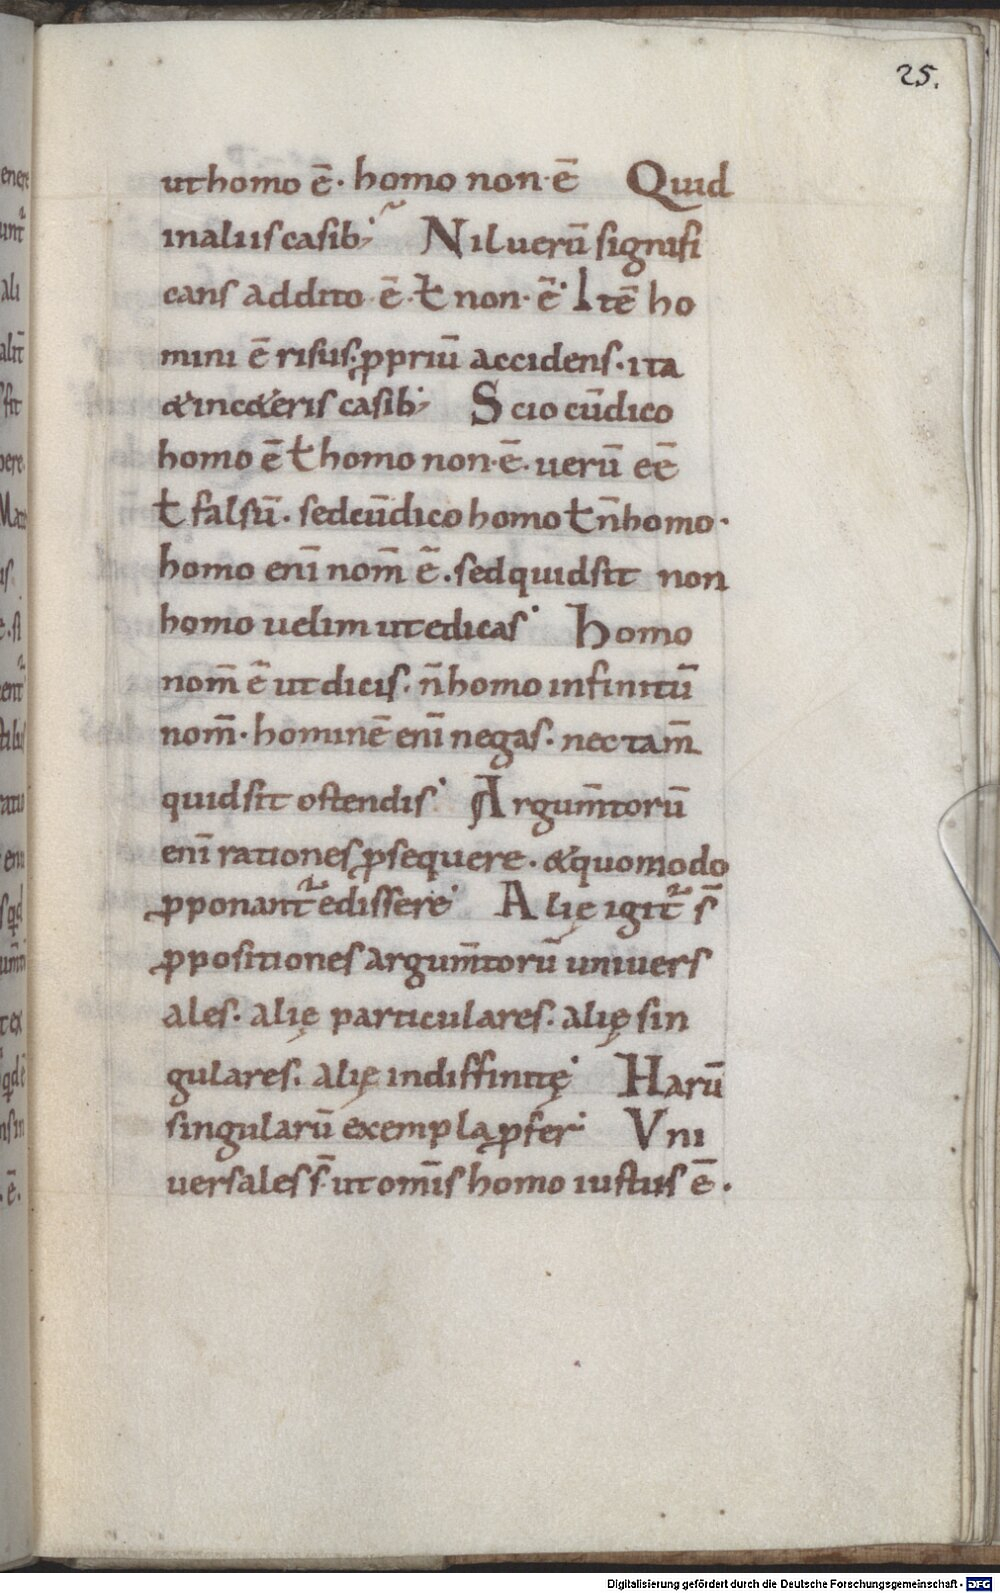 25.
ut homo ē. homo non ē Quid
in aliis casib; Nil uerū signifi
cans addito ē. ł non. ē. Itē ho
mini ē risus. ꝓpriū accidens. ita
& in c&eris casib; Scio cū dico
homo ē ł homo non. ē. uerū eē
ł falsū. sed cū dico homo ł n̄ homo.
homo eni̅ nom̄ ē. sed quid sit non
homo uelim ut edicas. Homo
nom̄ ē ut dicis. n̄ homo infinitū
nom̄. hominē eni̅ negas. nec tam̄
quid sit ostendis. Argum̄torū
eni̅ rationes ꝓsequere. & quomodo
ꝓponant᷑ edissere. Alię igit᷑ s̄
ꝓpositiones argum̄torū uniuers
ales. alię particulares. alię sin
gulares. alię indiffinitę. Harū
singularū exempla ꝓfer. Vni
uersales s̄. ut om̄is homo iustus ē.
Digitalisierung gefördert durch die Deutsche Forschungsgemeinschaft - DFG